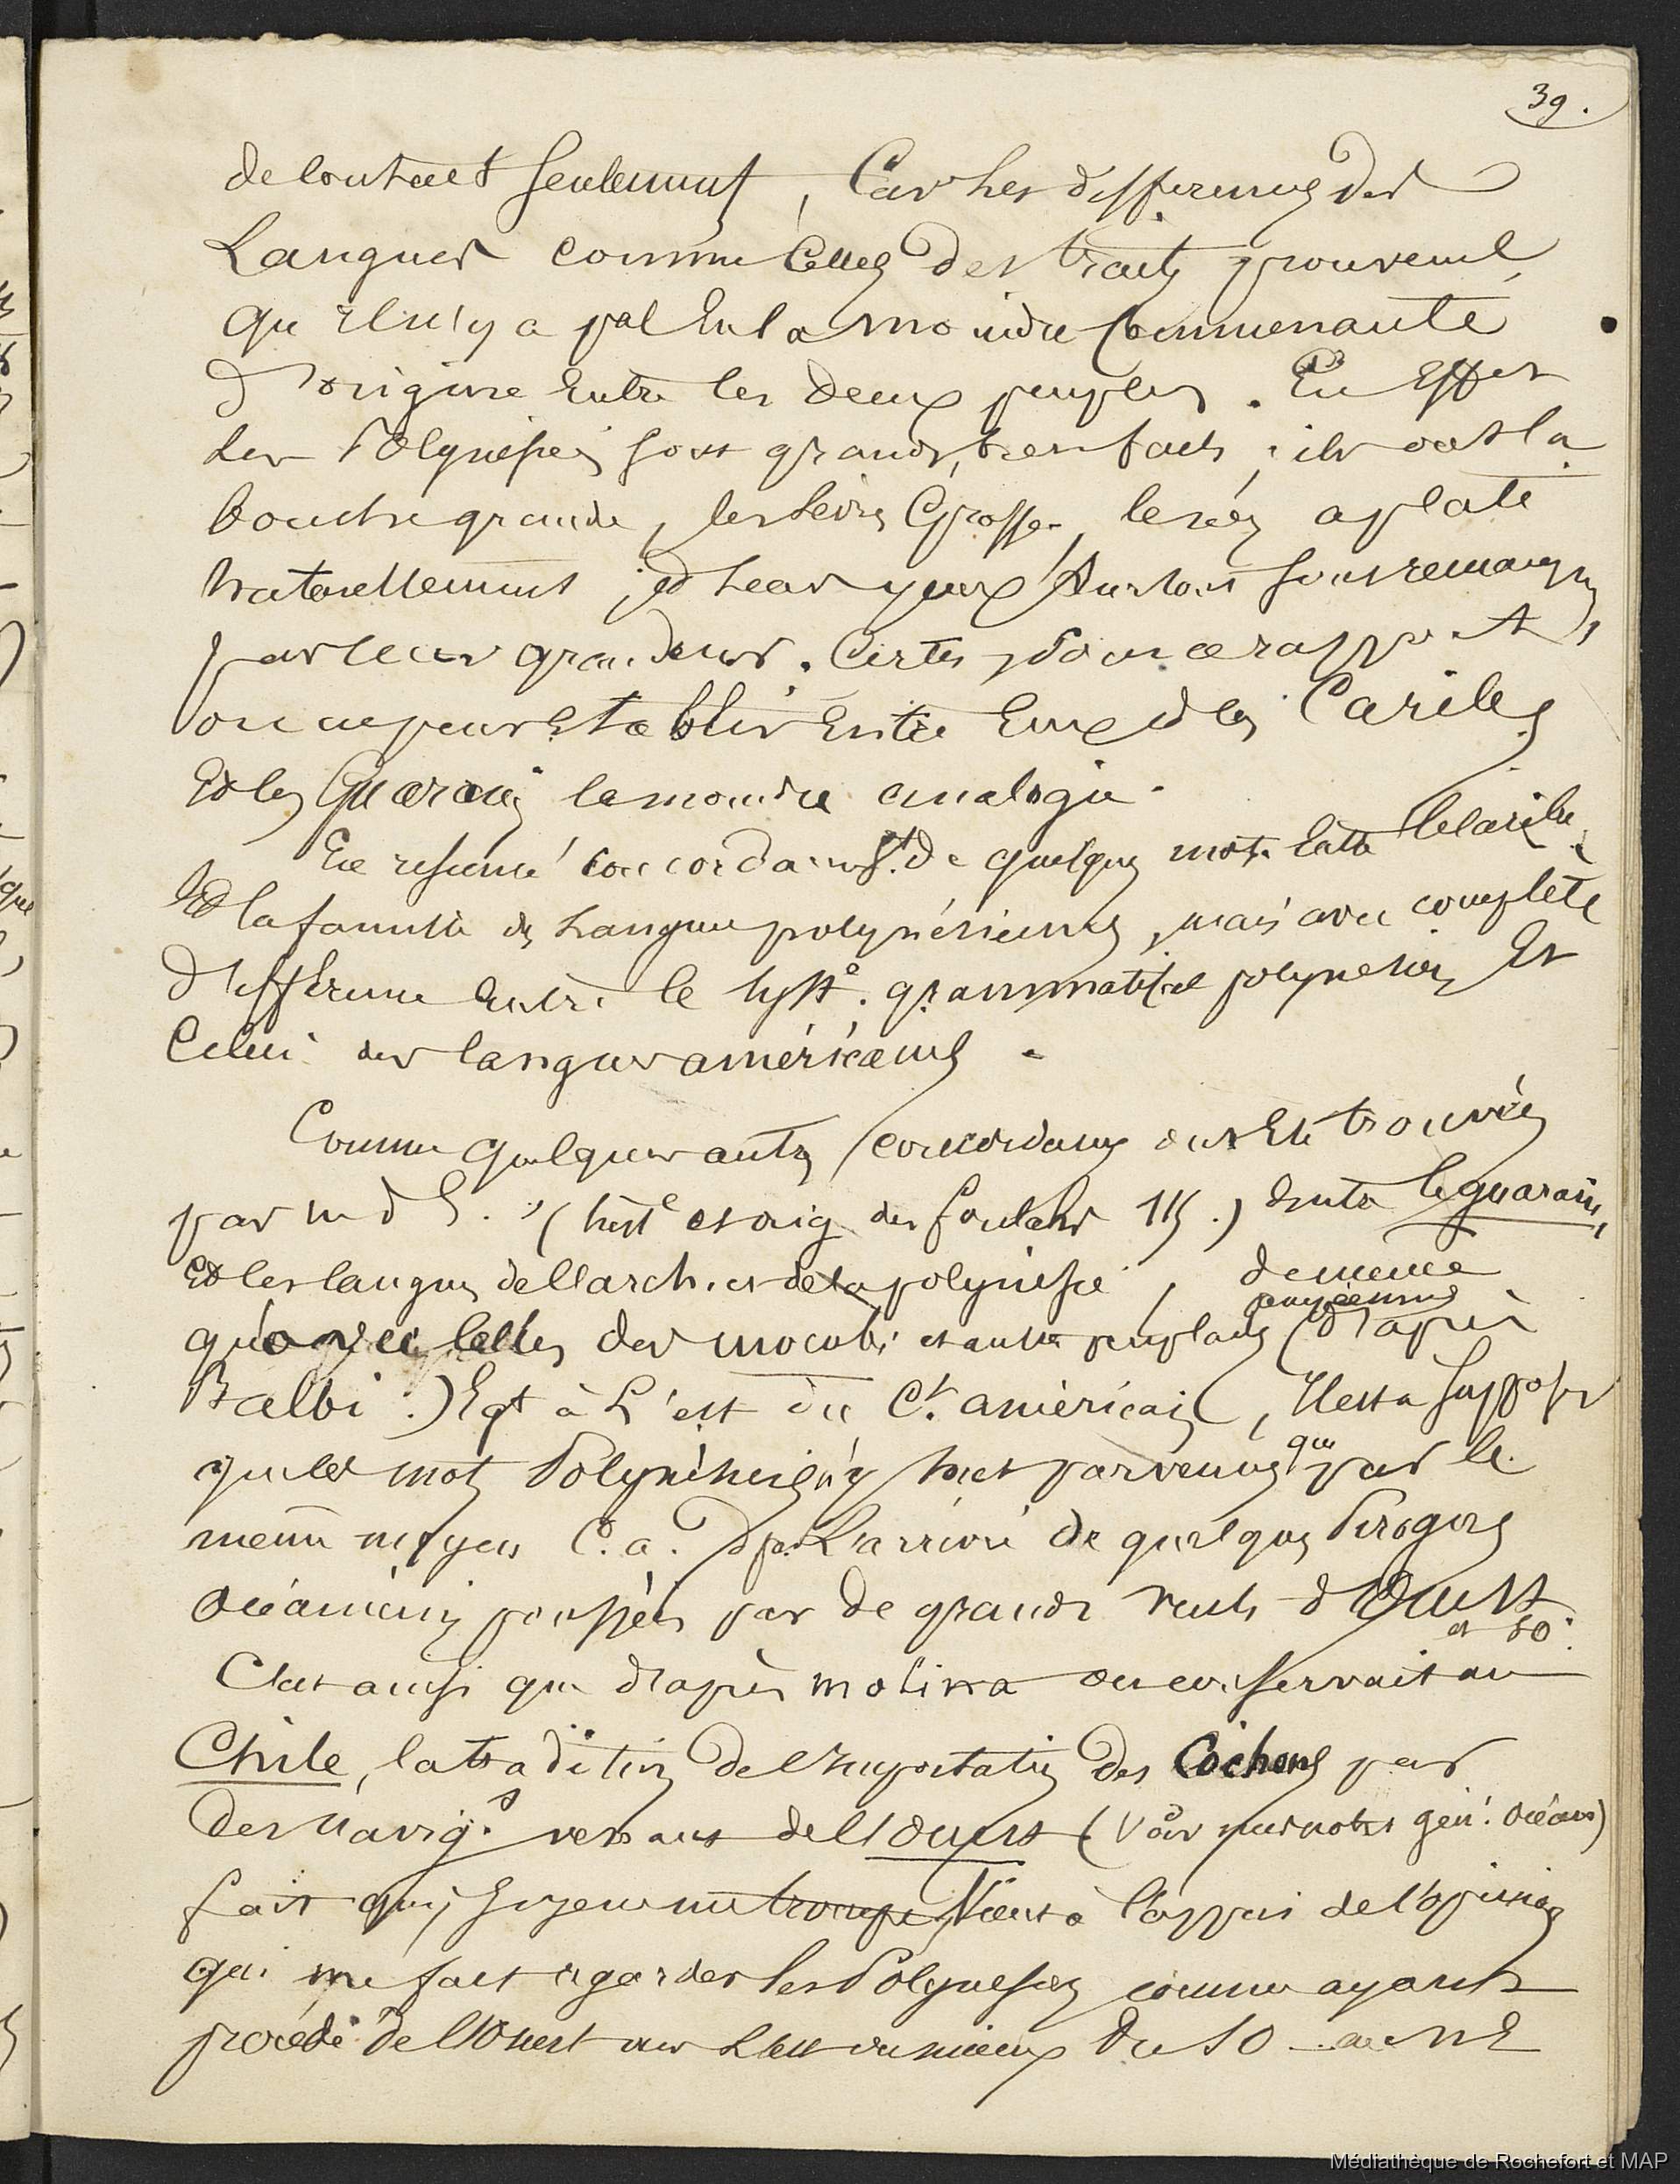 39.
de contact seulement, Car les differences des
Langues comme Celles des traits prouvent
qu'il n'y a pas Eu la moindre Communauté
d'origine Entre les deux peuples. En Effet
les Polynesiens sont grands, bien faits, ils ont la
bouche grande, les levres Grosses, le nez aplati
naturellement, et leurs yeux surtout sont remarqués
par leur grandeur. Certes, sous ce rapport,
on ne peut Etablir Entre Eux et les Caribes
Et les Guaranis la moindre analogie.
En resumé concordance de quelques mots Entre le Caribe
Et la famille des Langues polynésiennes, mais avec complète
différence Entre le syste. grammatical polynesien Et
Celui des langues américaines.
Comme quelques autres concordances ont Eté trouvées
par M d'E. (histe et orig des foulahs 115.) Entre le guarani,
Et les langues de l'arch. et de la polynesie, de meme
qu'avec celles des mocobi et autres peuplades (d'après
Balbi.) Egt à L'est du Ct. américain, Il est a supposer
que les mots Polynésiens n'y sont parvenus que par le
même moyen C. a. d par L'arrivée de quelques Pirogues
Océaniennes poussées par de grands vents d'Ouest
et SO.
C'est ainsi que d'après Molina on conservait au
Chile, la tradition de l'importation des Cochons par
Des Navigs. venant de l'ouest (Voir mes notes géné. Océan)
fait qui, si je ne me trompe, Vient à l'appui de l'opinion
qui me fait regarder les Polynesiens comme ayant
procédé de l'Ouest vers L'Est ou mieux Du SO au NE
Médiathèque de Rochefort et MAP